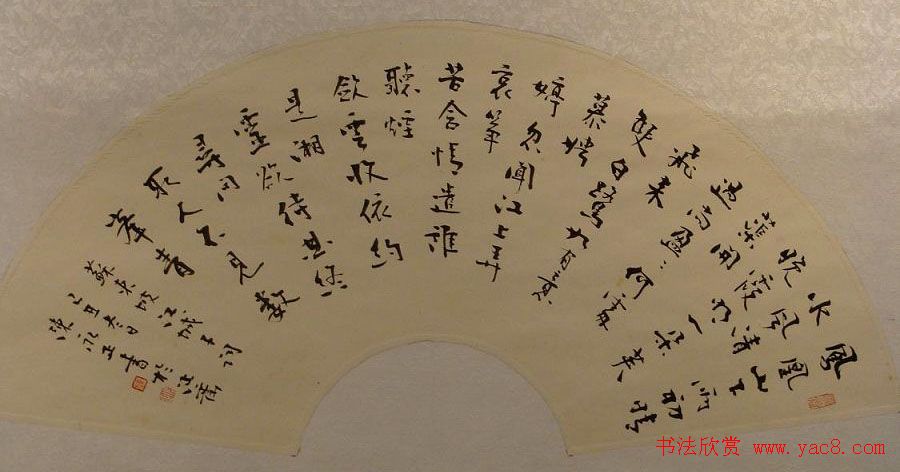 鳳凰山下雨初晴
水風清
晚霞明一朵芙
蕖開
過尚盈〻何處
飛來
雙白鷺如有意
慕娉
婷忽聞江上弄
哀箏
苦含情遣誰
聽煙
斂雲收依約
是湘
靈欲待曲終
尋問
取人不見數
峯青
蘇東坡江城子詞
乙丑春日於
陳永正書
书法欣赏 www.yac8.com